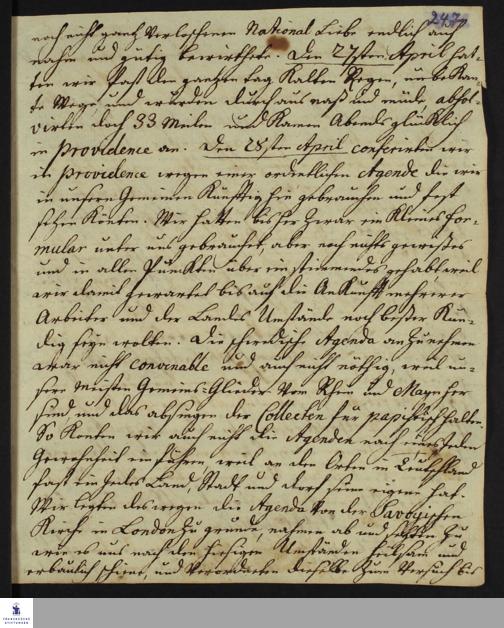 247
noch nicht gantz verloschenen National Liebe endlich auf-
nahm und gütig bewirthete. Den 27sten April hat-
ten wir fast den gantzen tag Kalten Regen, unbekan-
te Wege, und wurden durchaus naß und müde, absol-
virten doch 33 Meilen und kamen Abends glücklich
in Providence an. Den 28sten April conferirten wir
in Providence wegen einer ordentlichen Agende die wir
in unsern Gemeinen Künfftig hin gebrauchen und fest
setzen Könten. Wir hatten bisher zwar ein Kleines For-
mular unter uns gebrauchet, aber noch nichts gewisses
und in allen Puncten übereinstimmendes gehabt, weil
wir damit gewartet bis auf die AnKunfft mehrerer
Arbeiter und der Landes Umstände noch besser Kün-
dig seyn wolten. Die schwedische Agenda anzunehmen
war nicht convenable und auch nicht nöthig, weil un-
sere meisten Gemeins-Glieder vom Rhein und Mayn her
sind und das absingen der Collecten für papistisch halten.
So Konten wir auch nicht die Agenden nach eines jeden
Gewohnheit einführen, weil an den Orten in Teutschland
fast ein jedes Land, Stadt und dorf seine eigene hat.
Wir legten deswegen die Agenda von der Savoyischen
Kirche in London zu grunde, nahmen ab und setzten zu
wie es uns nach den hiesigen Umständen heilsam und
erbaulich schiene, und verordneten dieselbe zum Versuch bis
FRANCKESCHE
STIFTUNGEN